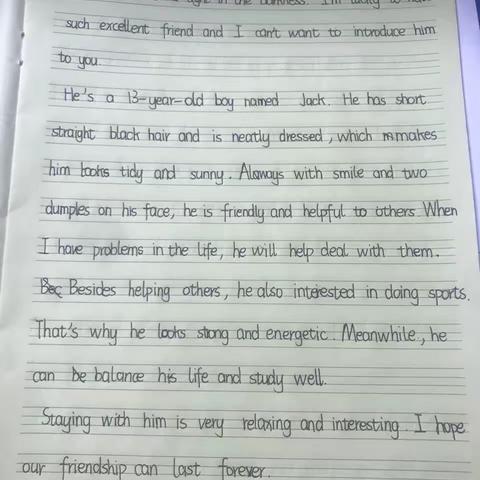 in the darkness. I'm lucky to have
such excellent friend and I can't want to introduce him
to you.
He's a 13-year-old boy named Jack. He has short
straight black hair and is neatly dressed, which makes
him looks tidy and sunny. Always with smile and two
dumples on his face, he is friendly and helpful to others. When
I have problems in the life, he will help deal with them.
Bec Besides helping others, he also interested in doing sports.
That's why he looks stong and energetic. Meanwhile, he
can be balance his life and study well.
Staying with him is very relaxing and interesting. I hope
our friendship can last forever.